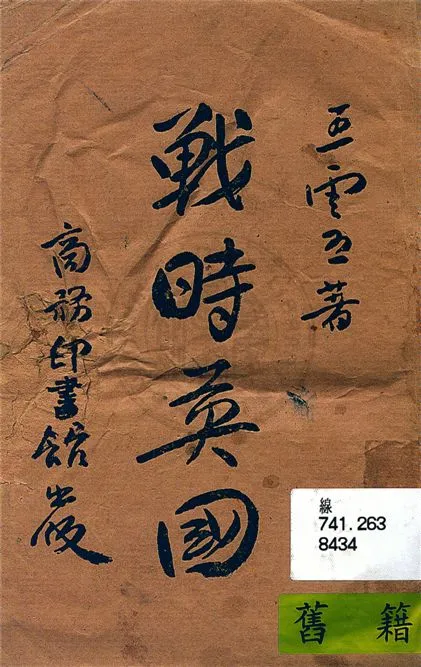 王雲五著
戰時英國
商務印書館出版
線
741.263
8434
舊籍